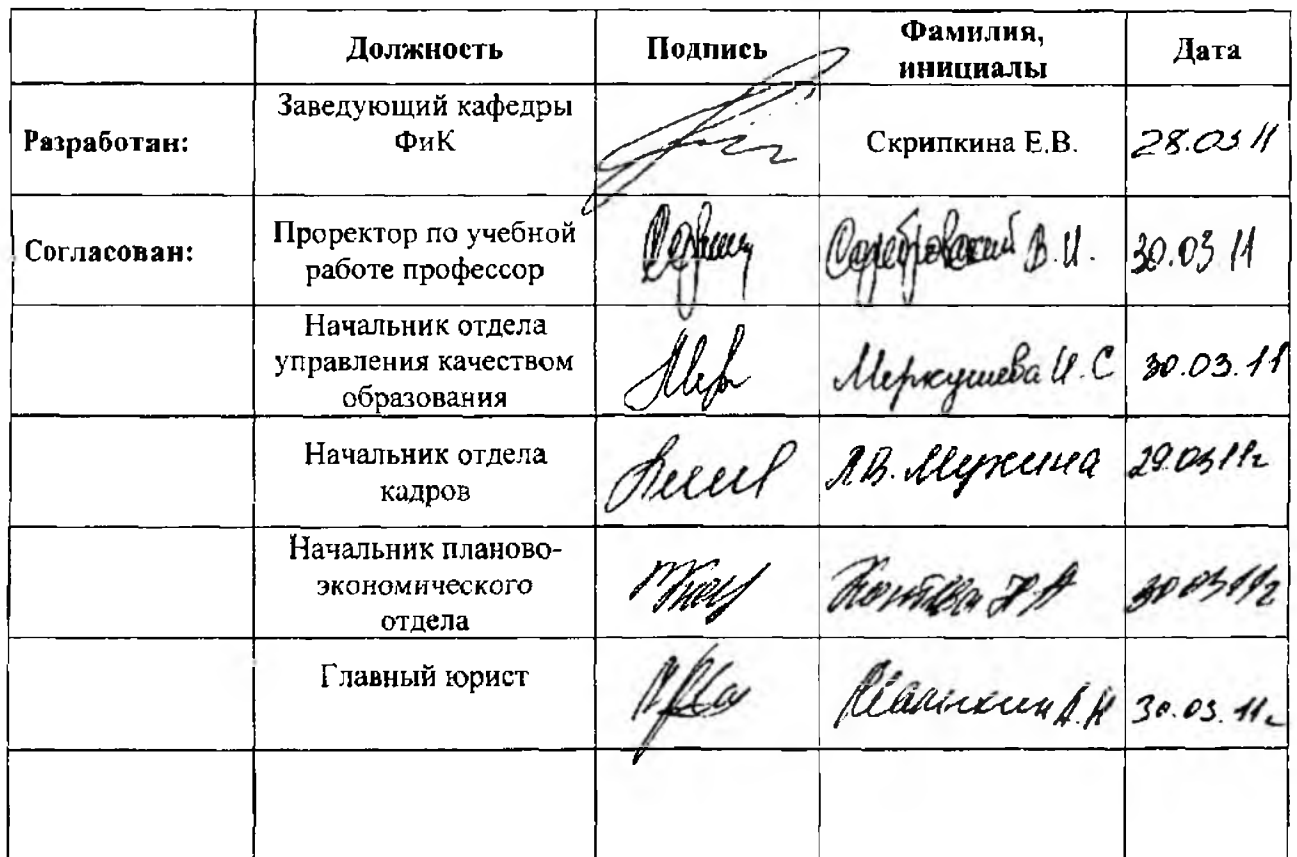 Должность Подпись Фамилия, инициалы Дата
Разработан: Заведующий кафедры ФиК Скрипкина Е.В. 28.03.11
Согласован: Проректор по учебной работе профессор Серебровский В.И. 30.03.11
Начальник отдела управления качеством образования Меркушева И.С 30.03.11
Начальник отдела кадров Л.В. Мужина 29.03.11г
Начальник планово-экономического отдела 30.03.11г
Главный юрист 30.03.11г